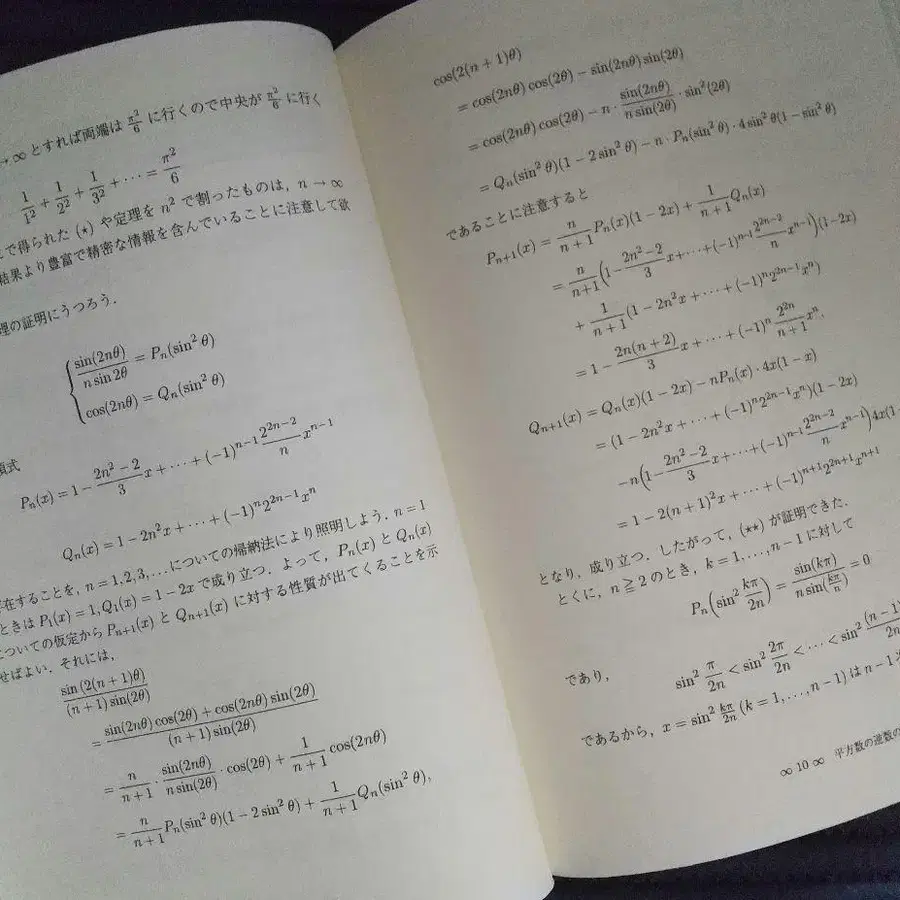 → ∞ とすれば両端は π²/6 に行くので中央が π²/6 に行く
1/1² + 1/2² + 1/3² + ··· = π²/6
で得られた (⋆) や定理を n² で割ったものは, n → ∞
結果より豊富で精密な情報を含んでいることに注意して欲
理の証明にうつろう.
{ sin(2nθ)/(n sin 2θ) = P_n(sin² θ)
cos(2nθ) = Q_n(sin² θ)
項式
P_n(x) = 1 − (2n² − 2)/3 x + ··· + (−1)^{n−1} 2^{2n−2}/n x^{n−1}
Q_n(x) = 1 − 2n²x + ··· + (−1)^n 2^{2n−1} x^n
存在することを, n = 1, 2, 3, ... についての帰納法により照明しよう. n = 1
ときは P₁(x) = 1, Q₁(x) = 1 − 2x で成り立つ. よって, P_n(x) と Q_n(x)
についての仮定から P_{n+1}(x) と Q_{n+1}(x) に対する性質が出てくることを示
せばよい. それには,
sin(2(n + 1)θ)/((n + 1) sin(2θ))
= (sin(2nθ) cos(2θ) + cos(2nθ) sin(2θ))/((n + 1) sin(2θ))
= n/(n + 1) · sin(2nθ)/(n sin(2θ)) · cos(2θ) + 1/(n + 1) cos(2nθ)
= n/(n + 1) P_n(sin² θ)(1 − 2 sin² θ) + 1/(n + 1) Q_n(sin² θ),
cos(2(n + 1)θ)
= cos(2nθ) cos(2θ) − sin(2nθ) sin(2θ)
= cos(2nθ) cos(2θ) − n · sin(2nθ)/(n sin(2θ)) · sin²(2θ)
= Q_n(sin² θ)(1 − 2 sin² θ) − n · P_n(sin² θ) · 4 sin² θ(1 − sin² θ)
であることに注意すると
P_{n+1}(x) = n/(n + 1) P_n(x)(1 − 2x) + 1/(n + 1) Q_n(x)
= n/(n + 1) (1 − (2n² − 2)/3 x + ··· + (−1)^{n−1} 2^{2n−2}/n x^{n−1})(1 − 2x)
+ 1/(n + 1) (1 − 2n²x + ··· + (−1)^n 2^{2n−1} x^n)
= 1 − 2n(n + 2)/3 x + ··· + (−1)^n 2^{2n}/(n + 1) x^n,
Q_{n+1}(x) = Q_n(x)(1 − 2x) − nP_n(x) · 4x(1 − x)
= (1 − 2n²x + ··· + (−1)^n 2^{2n−1} x^n)(1 − 2x)
−n(1 − (2n² − 2)/3 x + ··· + (−1)^{n−1} 2^{2n−2}/n x^{n−1})4x(1
= 1 − 2(n + 1)²x + ··· + (−1)^{n+1} 2^{2n+1} x^{n+1}
となり, 成り立つ. したがって, (⋆⋆) が証明できた.
とくに, n ≧ 2 のとき, k = 1, ..., n − 1 に対して
P_n(sin² kπ/2n) = sin(kπ)/(n sin(kπ/n)) = 0
であり,
sin² π/2n < sin² 2π/2n < ··· < sin² (n − 1)/2n
であるから, x = sin² kπ/2n (k = 1, ..., n − 1) は n − 1
∞ 10 ∞ 平方数の逆数の